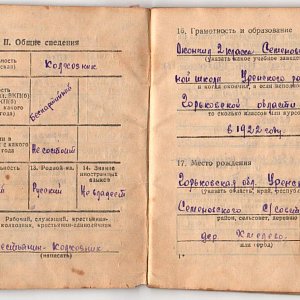 II. Общие сведения
ность
Колхозник
Беспартийный
Не состоит
ность
13. Родной яз.
14. Знание
иностранных
языков
ий
Русский
Не владеет
Рабочий, служащий, крестьянин-
колхозник, крестьянин-единоличник
Крестьянин-Колхозник
(написать)
16. Грамотность и образование
Окончил 2 класса
(указать какое учебное завед
ной школы Уренского ра
и когда окончил, а если
Горьковской области
то сколько классов или курсов
в 1922 году.
17. Место рождения
Горьковская обл. Уренск
(указать область, край, республ
Семеновского с/совет
район, сельсовет, деревню
дер.
или город)
1*